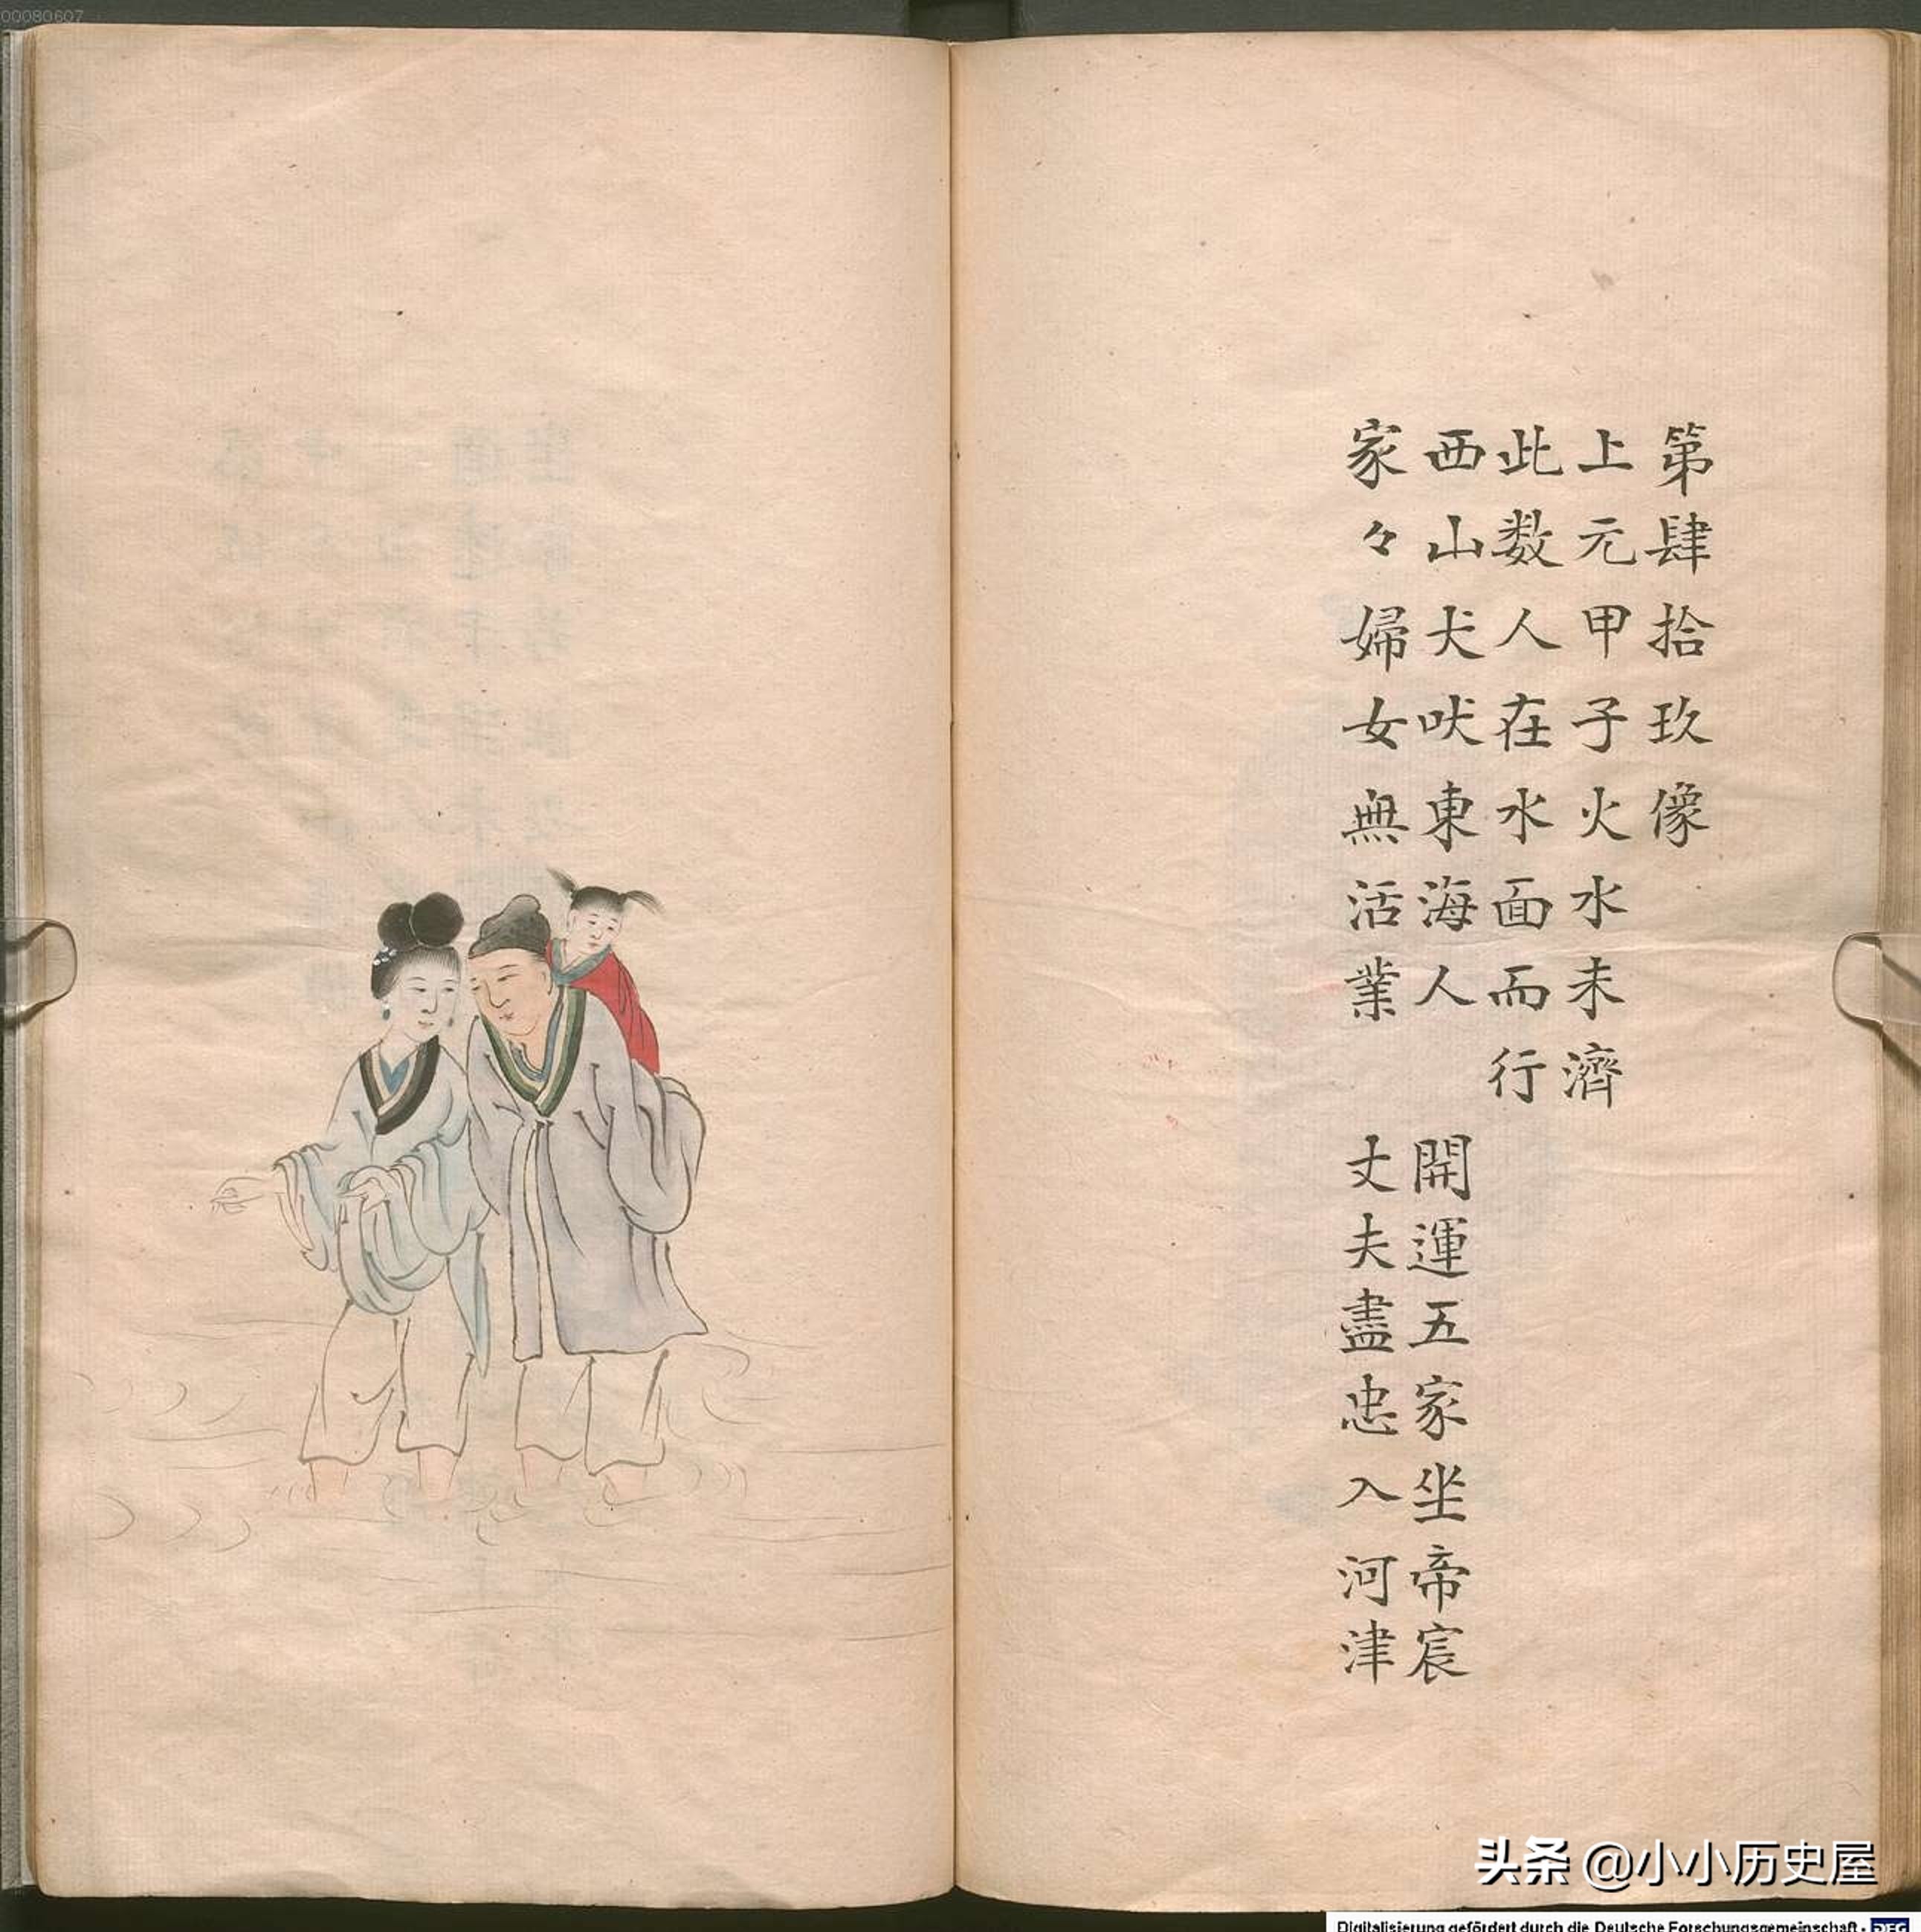 00080607
第肆拾玖像
上元甲子火水未濟
此数人在水面而行
西山犬吠東海人　開運五家坐帝宸
家々婦女無活業　丈夫盡忠入河津
头条 @小小历史屋
Digitalisierung gefördert durch die Deutsche Forschungsgemeinschaft - DFG